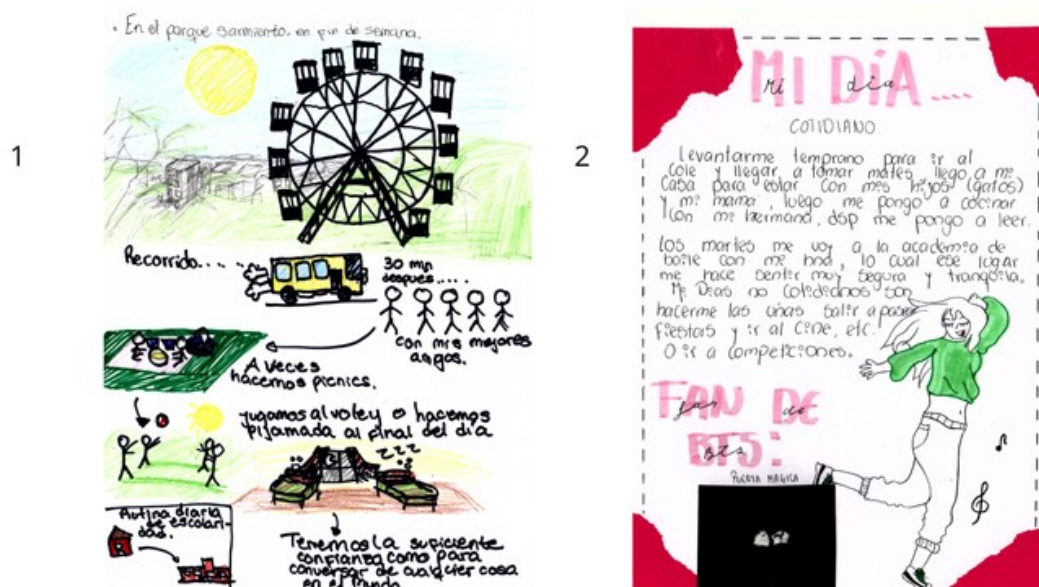 1
• En el parque sarmiento, en fin de semana.
Recorrido....
30 min
despues....
con mis mejores
amigos.
A veces
hacemos picnics.
jugamos al voley o hacemos
pijamada al final del dia
zzz
Rutina diaria
de escolari-
dad.
Tenemos la suficiente
confianza como para
conversar de cualquier cosa
en el mundo
2
MI DÍA....
mi dia
COTIDIANO.
Levantarme temprano para ir al
cole y llegar a tomar mates, llego a mi
casa para estar con mis hijos (gatos)
y mi mama, luego me pongo a cocinar
con mi hermana, dsp me pongo a leer.
Los martes me voy a la academia de
baile con mi hna, lo cual ese lugar
me hace sentir muy segura y tranquila.
Mis Dias no cotidianos son
hacerme las uñas salir a pasear
Fiestas y ir al cine, etc.
O ir a competiciones.
FAN DE
fan de
BTS:
bts
PUERTA MAGICA